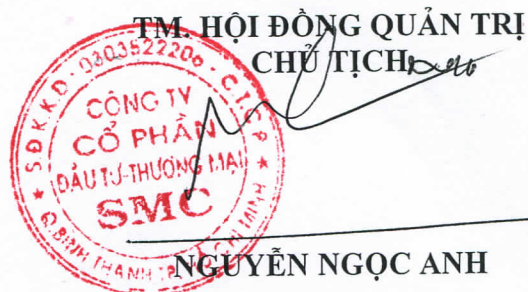 TM. HỘI ĐỒNG QUẢN TRỊ
CHỦ TỊCH
S.Đ.K.K.D: 0303522206 - C.T.C.P
CÔNG TY
CỔ PHẦN
ĐẦU TƯ-THƯƠNG MẠI
SMC
Q.BÌNH THẠNH TP. HỒ CHÍ MINH
NGUYỄN NGỌC ANH